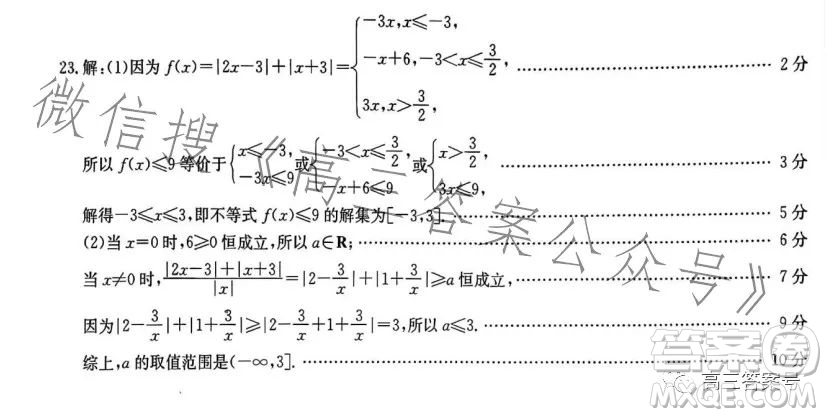 23.解:(1)因为 f(x)=|2x-3|+|x+3|={-3x,x≤-3, -x+6,-3<x≤3/2, 3x,x>3/2, 2分
所以 f(x)≤9 等价于{x≤-3, -3x≤9 或{-3<x≤3/2, -x+6≤9 或{x>3/2, 3x≤9, 3分
解得-3≤x≤3,即不等式 f(x)≤9 的解集为[-3,3]. 5分
(2)当 x=0 时,6≥0 恒成立,所以 a∈R; 6分
当 x≠0 时,|2x-3|+|x+3|/|x|=|2-3/x|+|1+3/x|≥a 恒成立, 7分
因为|2-3/x|+|1+3/x|≥|2-3/x+1+3/x|=3,所以 a≤3. 9分
综上,a 的取值范围是(-∞,3]. 10分
微信搜《高三答案公众号》
答案圈
高三答案号
MXQE.COM